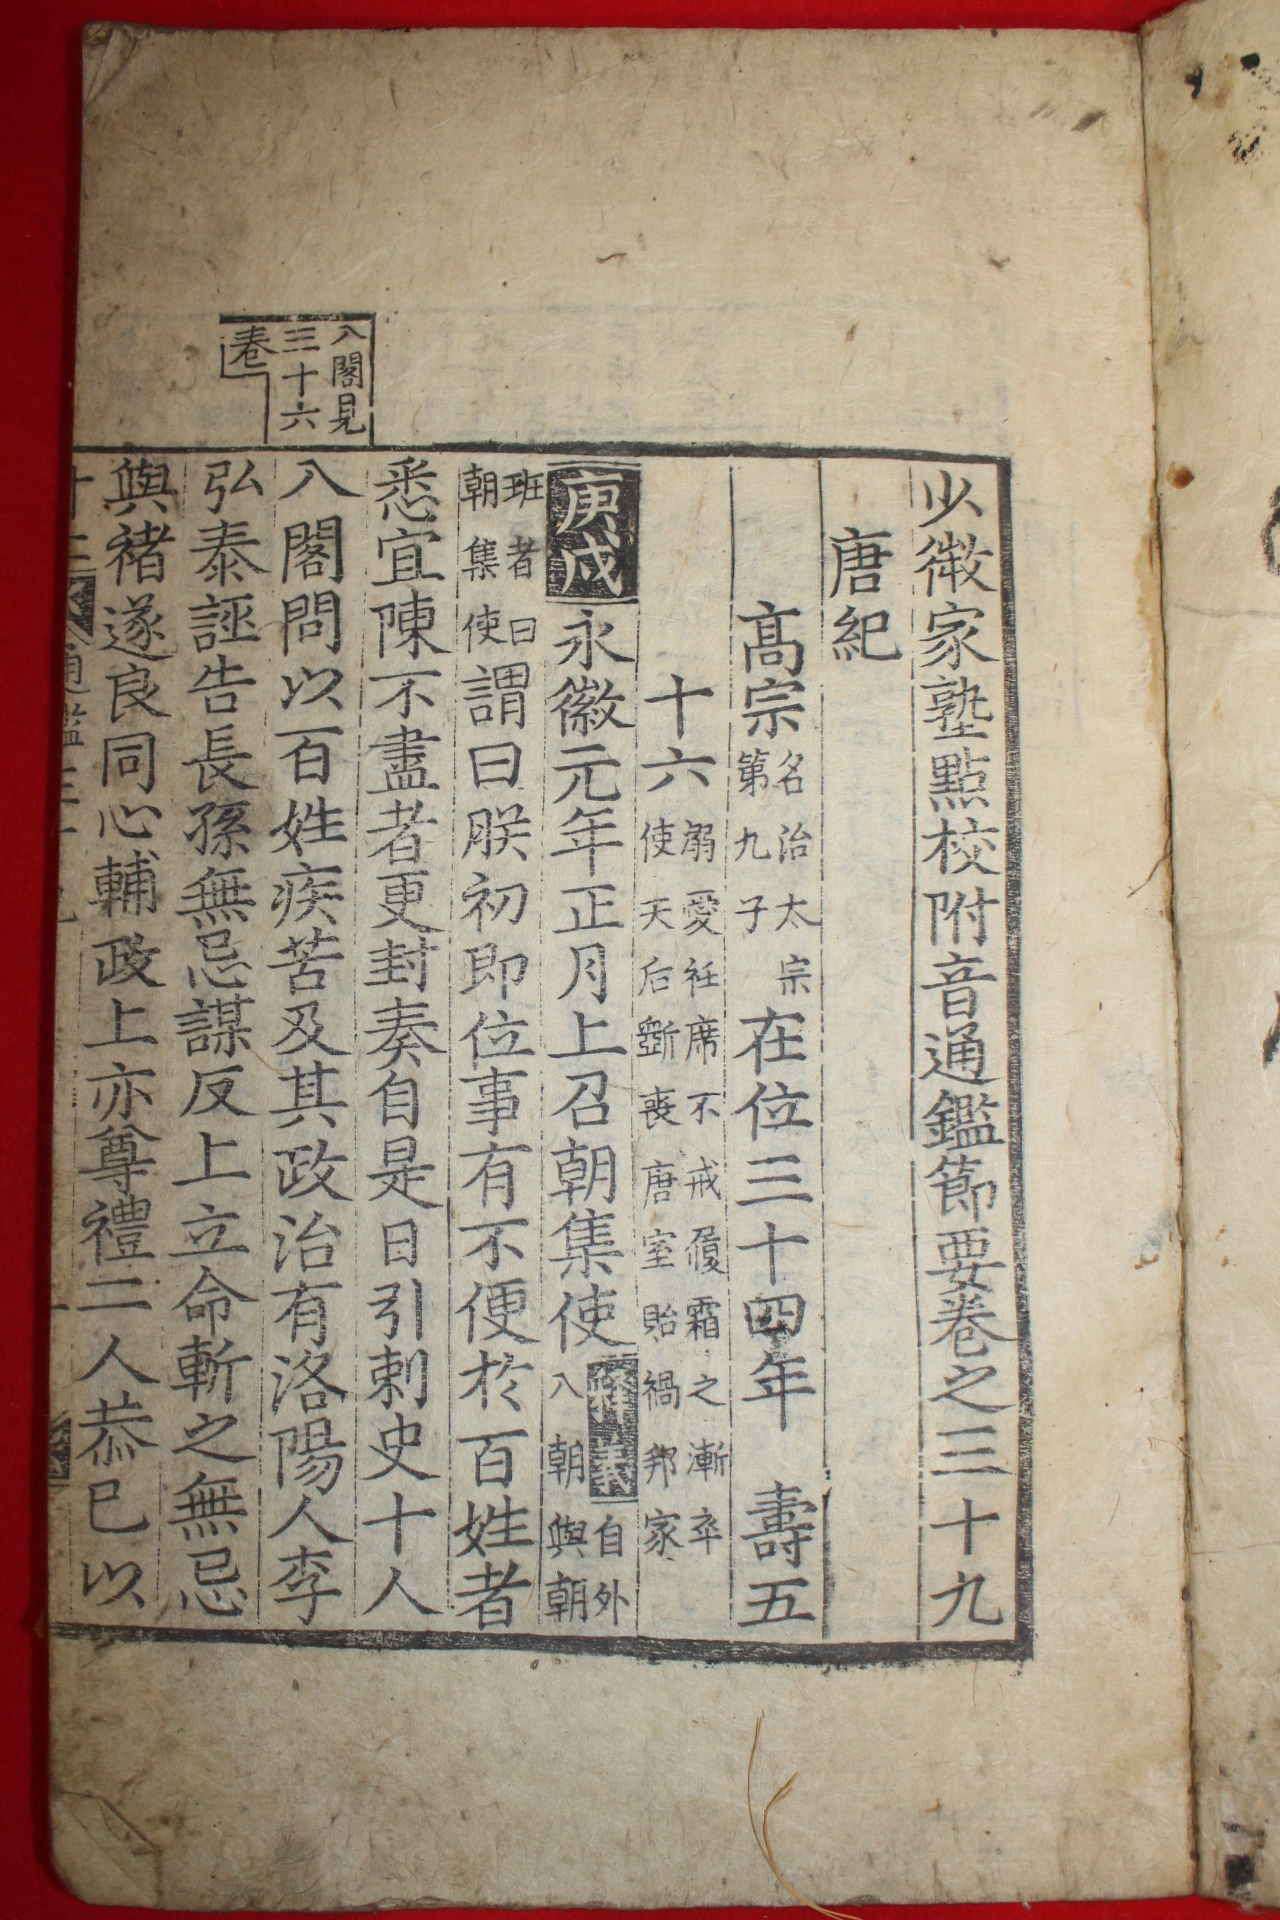 少微家塾點校附音通鑑節要卷之三十九
唐紀
高宗名治太宗第九子在位三十四年 壽五
十六溺愛衽席不戒履霜之漸卒使天后斲喪唐室貽禍邦家
庚戌永徽元年正月上召朝集使釋義自外入朝與朝
班者曰朝集使謂曰朕初即位事有不便於百姓者
悉宜陳不盡者更封奏自是日引刺史十人
入閤問以百姓疾苦及其政治有洛陽人李
弘泰誣告長孫無忌謀反上立命斬之無忌
與褚遂良同心輔政上亦尊禮二人恭已以
入閤見
三十六
卷